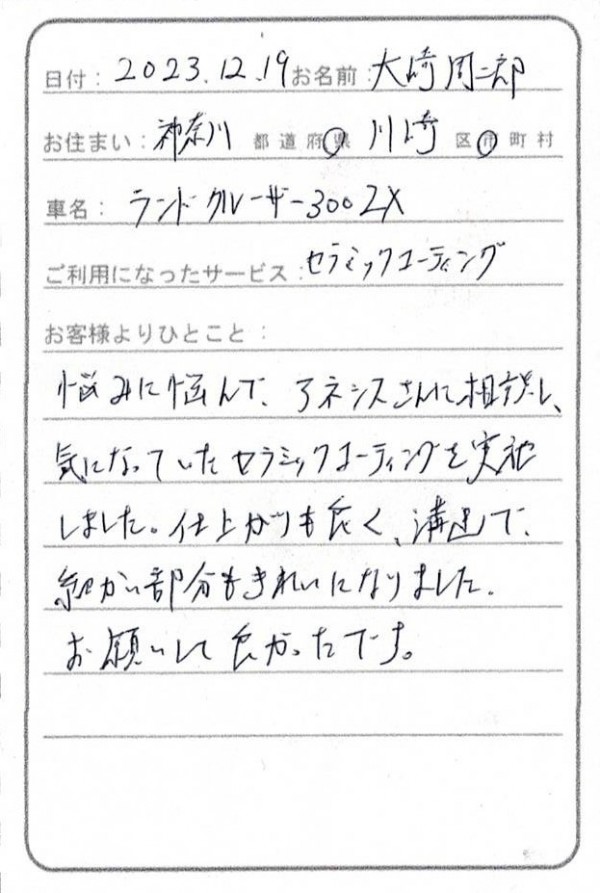 日付：2023.12.19 お名前：大崎周二郎
お住まい：神奈川 都道府県 川崎 区市町村
車名：ランドクルーザー300ZX
ご利用になったサービス：セラミックコーティング
お客様よりひとこと：
悩みに悩んで、アネシスさんに相談し、
気になっていたセラミックコーティングを実施
しました。仕上がりも良く、満足で、
細かい部分もきれいになりました。
お願いして良かったです。